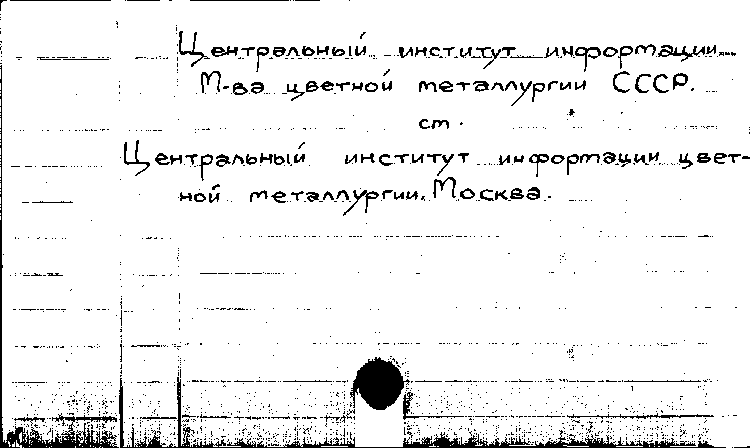 Центральный институт информации
М-ва цветной металлургии СССР.
см.
Центральный институт информации цвет-
ной металлургии. Москва.